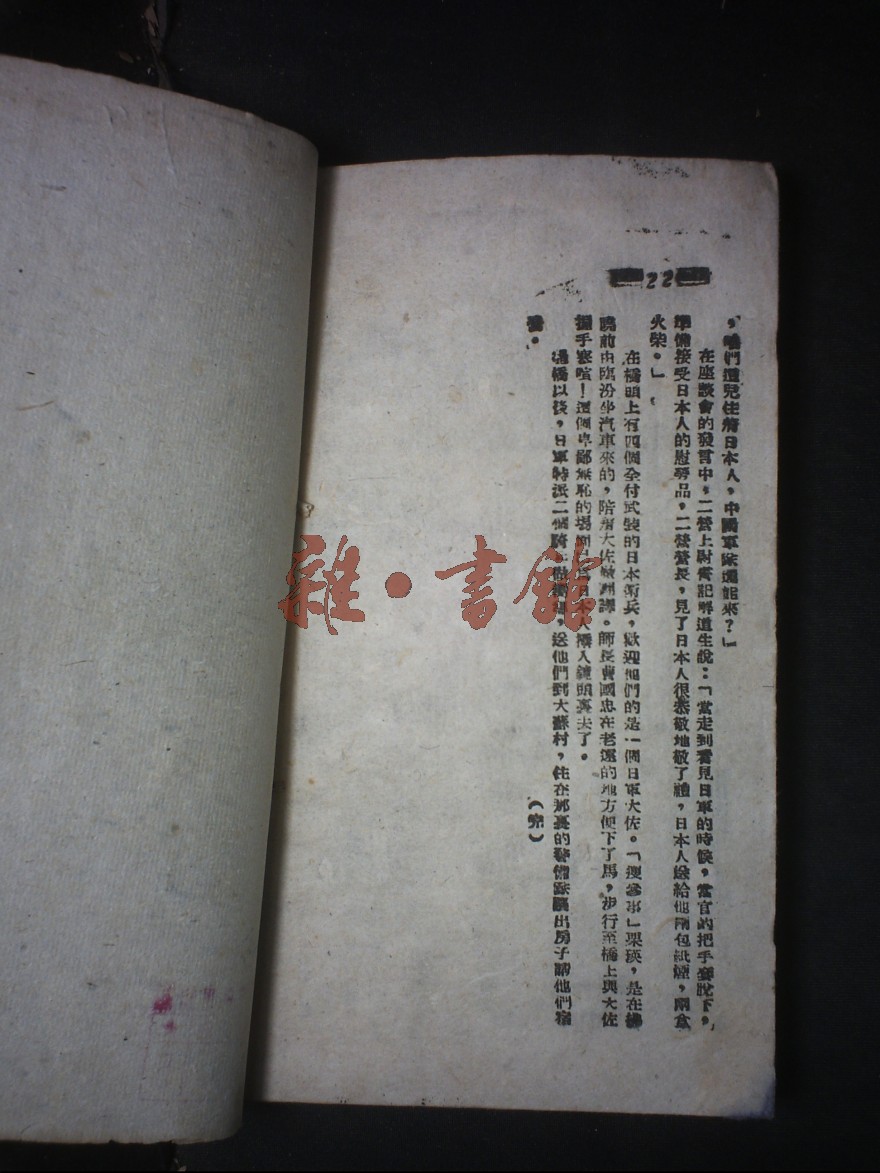 22
，咱們這兒住着日本人，中國軍隊還能來？」
在座談會的發言中，二營上尉書記 道生說：「當走到看見日軍的時候，當官的把手套脫下，
準備接受日本人的慰勞品，二營營長，見了日本人很恭敬地敬了禮，日本人送給他兩包紙煙，兩盒
火柴。」
在橋頭上有四個全付武裝的日本衛兵，歡迎他們的是一個日軍大佐。「 參事」 瑛，是在
前由臨汾坐汽車來的，陪着大佐 。師長曹國忠在老遠的地方便下了馬，步行至橋上與大佐
握手寒喧！這個卑鄙無恥的場 日本人攝入鏡頭裏去了。
過橋以後，日軍特派二 騎 ，送他們到大蘇村，住在那裏的警備隊騰出房子請他們宿
營。
（完）
雜·書館